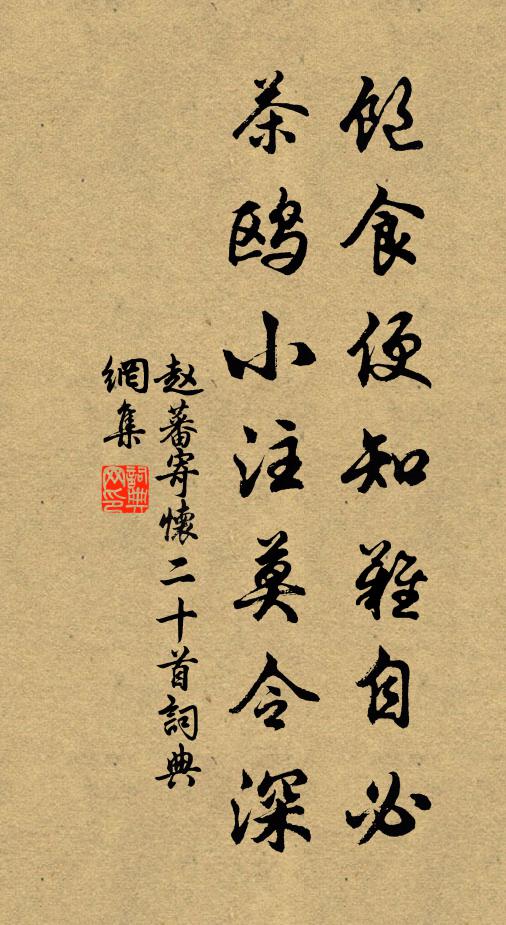 飽食便知難自必
茶鷗小注莫令深
赵蕃寄懷二十首詞典
網集
詞典网印